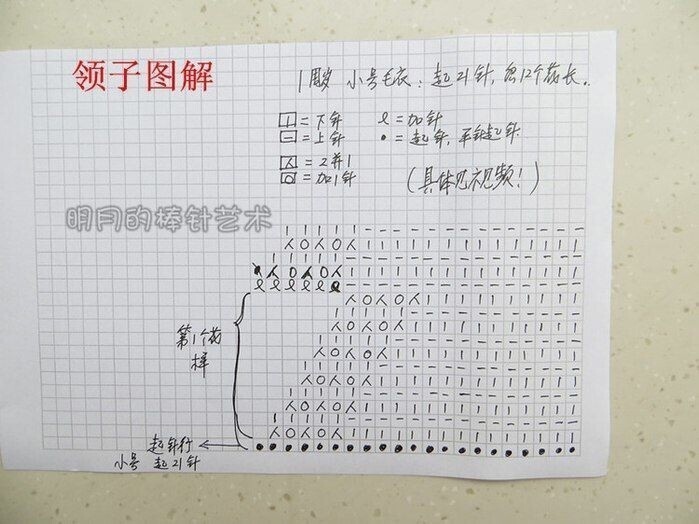 领子图解
1周岁 小号毛衣：起21针，织12个花长．
| = 下针
一 = 上针
人 = 2并1
O = 加1针
ℓ = 加针
• = 起针，平针起针．
（具体见视频！）
明月的棒针艺术
第1个花样
起针行
小号 起21针